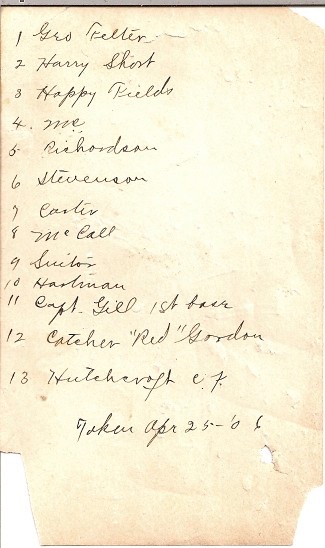 1 Geo Felter
2 Harry Short
3 Happy Fields
4. Mc
5 Richardson
6 Stevenson
7 Carter
8 McCall
9 Suitor
10 Hartman
11 Capt. Gill 1st base
12 Catcher "Red" Gordon
13 Hutchcroft c.f.
Taken Apr 25-'06